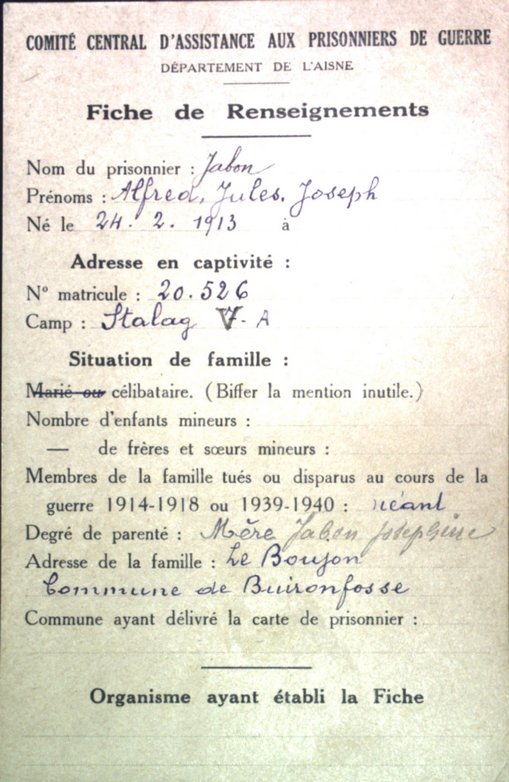 COMITÉ CENTRAL D'ASSISTANCE AUX PRISONNIERS DE GUERRE
DÉPARTEMENT DE L'AISNE
Fiche de Renseignements
Nom du prisonnier : Jabon
Prénoms : Alfred, Jules, Joseph
Né le 24. 2. 1913 à
Adresse en captivité :
N° matricule : 20.526
Camp : Stalag V. A
Situation de famille :
Marié ou célibataire. (Biffer la mention inutile.)
Nombre d'enfants mineurs :
— de frères et sœurs mineurs :
Membres de la famille tués ou disparus au cours de la
guerre 1914-1918 ou 1939-1940 : néant
Degré de parenté : Mère Jabon Josephine
Adresse de la famille : Le Boujon
Commune de Buironfosse
Commune ayant délivré la carte de prisonnier :
Organisme ayant établi la Fiche